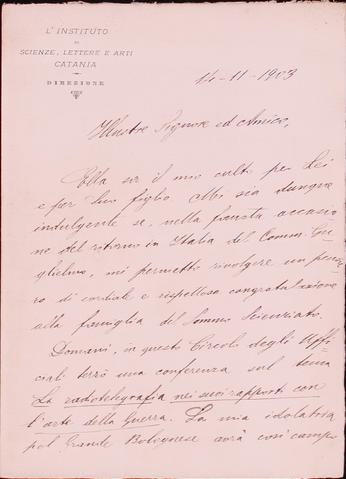 L' ISTITUTO
DI
SCIENZE, LETTERE E ARTI
CATANIA
DIREZIONE
14-11-1903
Illustre Signore ed Amico,
Ella sa il mio culto per Lei
e per Suo figlio. Mi sia dunque
indulgente se, nella fausta occasio
ne del ritorno in Italia del Comm. Gu
glielmo, mi permetto rivolgere un pensie
ro di cordiale e rispettosa congratulazione
alla famiglia del Sommo Scienziato.
Domani, in questo Circolo degli Uffi
ciali terrò una conferenza sul tema
La radiotelegrafia nei suoi rapporti con
l'arte della Guerra. La mia idolatria
pel Grande Bolognese avrà così campo